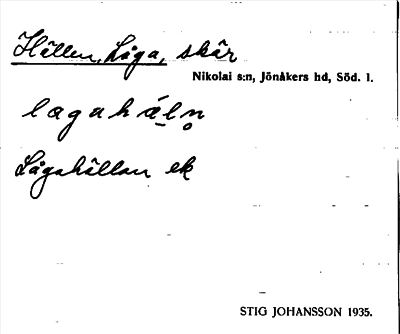 Hällen, Låga, skär
Nikolai s:n, Jönåkers hd, Söd. l.
lagahäln
Lågahällan ek
STIG JOHANSSON 1935.